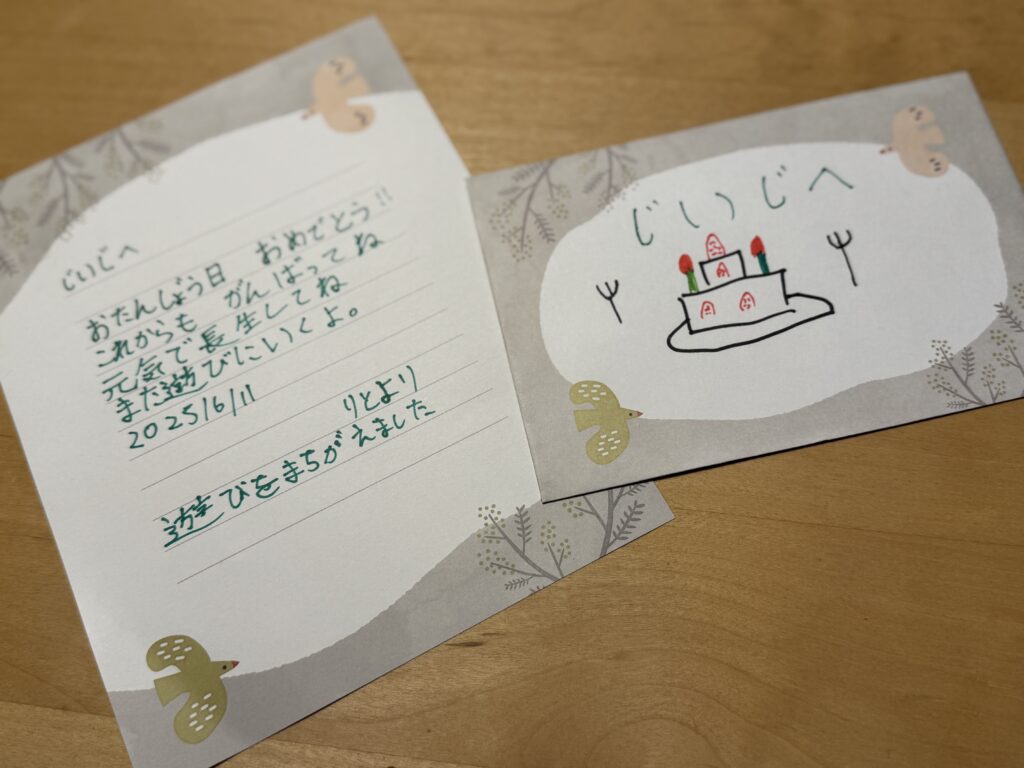 じいじへ
おたんじょう日 おめでとう!!
これからも がんばってね
元気で長生してね
また遊びにいくよ。
2025/6/11
りとより
遊びをまちがえました
じいじへ